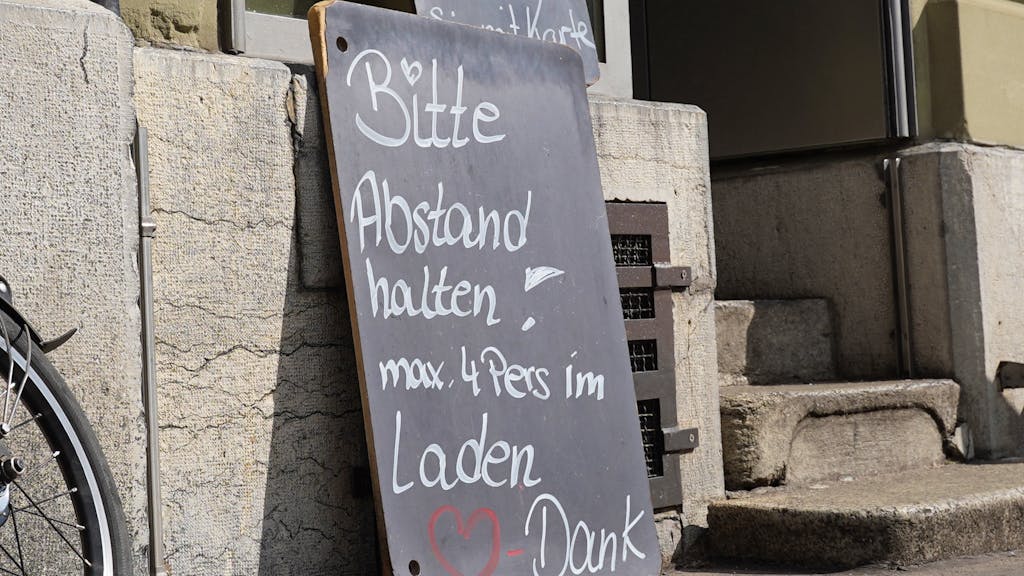 mit Karte
Bitte
Abstand
halten!
max. 4 Pers im
Laden
♥-Dank